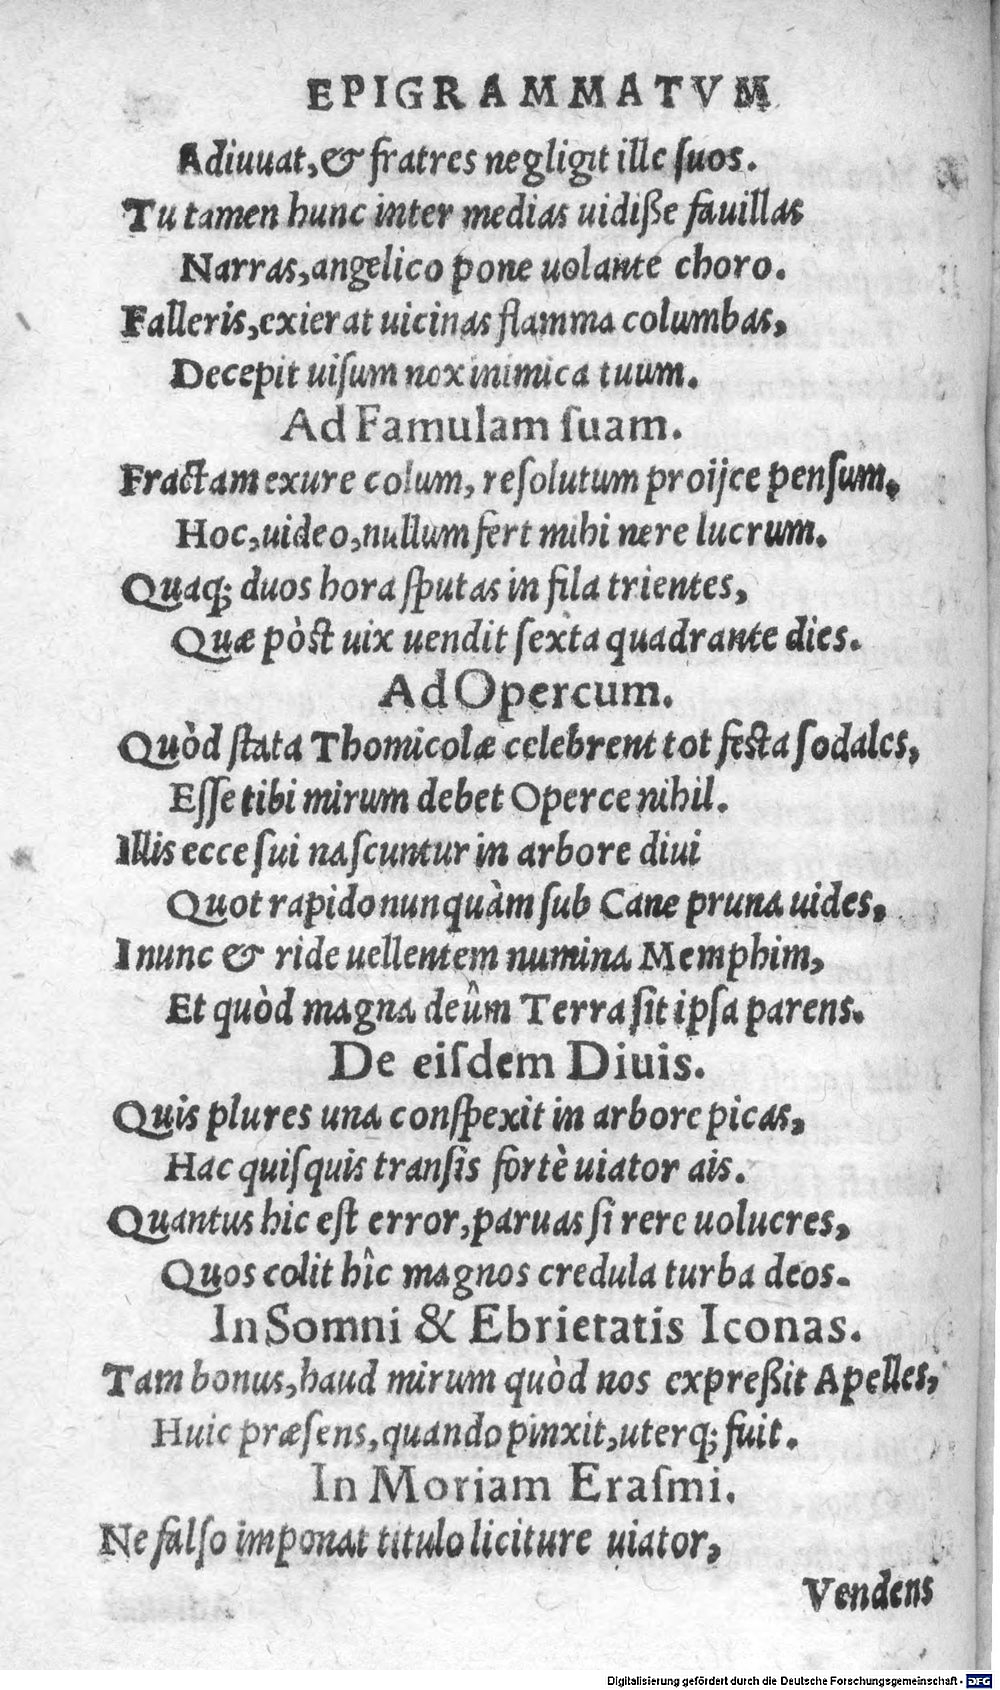 EPIGRAMMATVM
Adiuuat, & fratres negligit ille ſuos.
Tu tamen hunc inter medias uidiße fauillas
Narras, angelico pone uolante choro.
Falleris, exierat uicinas flamma columbas,
Decepit uiſum nox inimica tuum.
Ad Famulam ſuam.
Fractam exure colum, reſolutum proijce penſum,
Hoc, uideo, nullum fert mihi nere lucrum.
Quaq; duos hora ſputas in fila trientes,
Quæ pòst uix uendit ſexta quadrante dies.
Ad Opercum.
Quòd ſtata Thomicolæ celebrent tot feſta ſodales,
Eſſe tibi mirum debet Operce nihil.
Illis ecce ſui naſcuntur in arbore diui
Quot rapido nunquàm ſub Cane pruna uides,
I nunc & ride uellentem numina Memphim,
Et quòd magna deûm Terra ſit ipſa parens.
De eiſdem Diuis.
Quis plures una conſpexit in arbore picas,
Hac quiſquis tranſis fortè uiator ais.
Quantus hic eſt error, paruas ſi rere uolucres,
Quos colit hîc magnos credula turba deos.
In Somni & Ebrietatis Iconas.
Tam bonus, haud mirum quòd nos expreßit Apelles,
Huic præſens, quando pinxit, uterq; fuit.
In Moriam Eraſmi.
Ne falſo imponat titulo liciture uiator,
Vendens
Digitalisierung gefördert durch die Deutsche Forschungsgemeinschaft - DFG